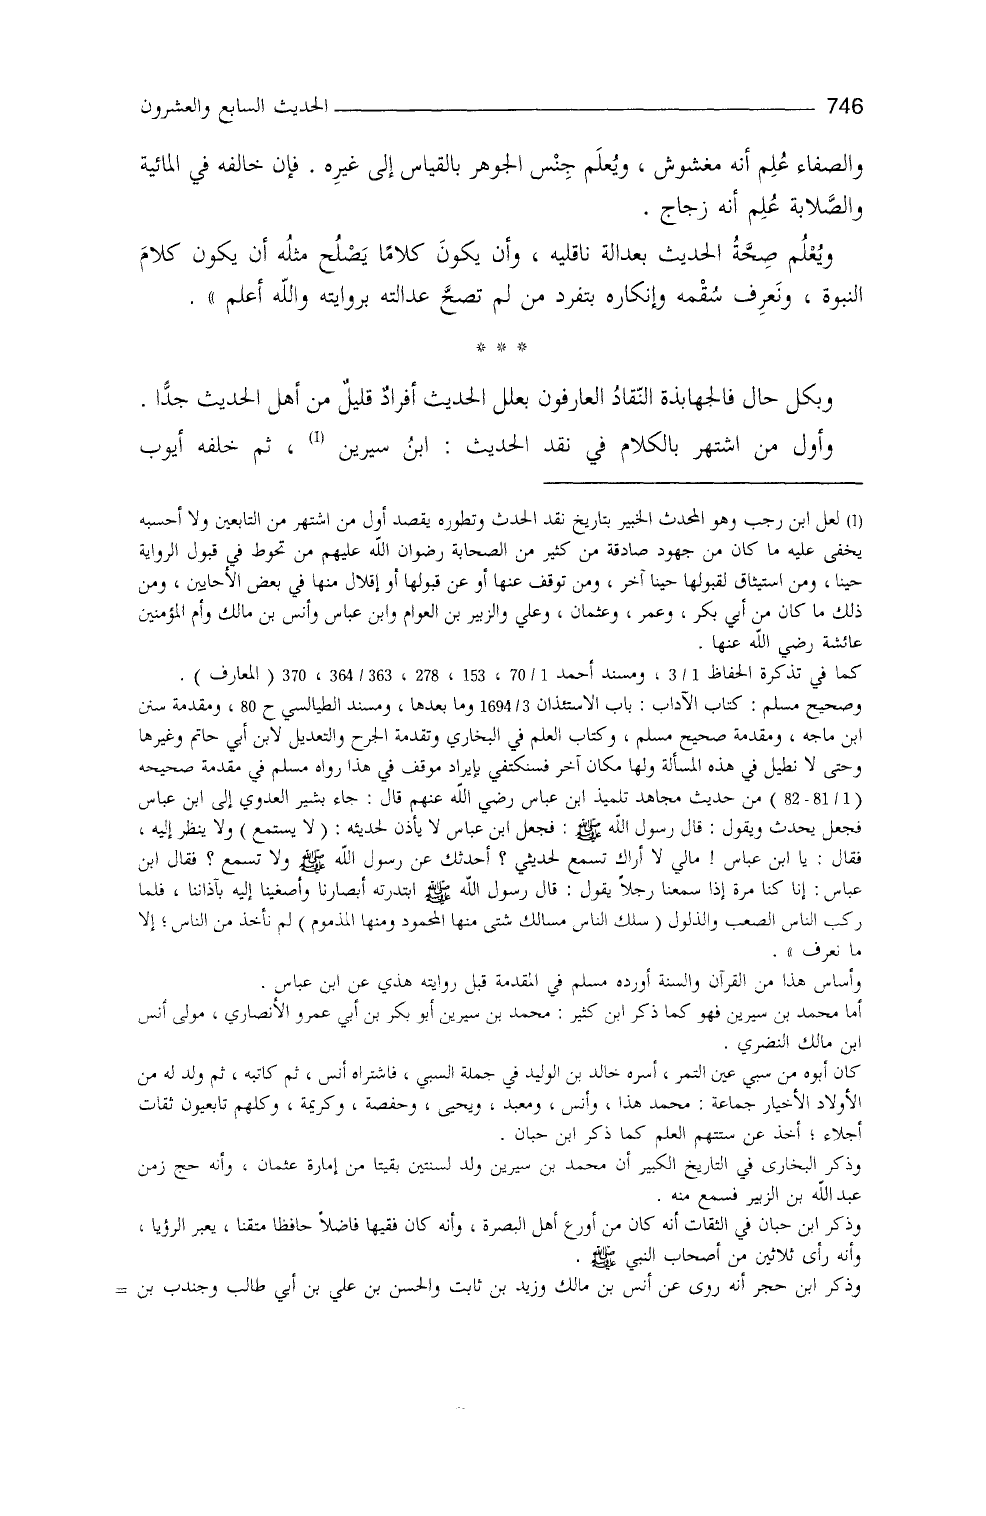 746 الحديث السابع والعشرون
والصفاء عُلِم أنه مغشوش ، ويُعلَم جِنْس الجوهر بالقياس إلى غيرِه . فإن خالفه في المائية
والصَّلابة عُلِم أنه زجاج .
ويُعْلُم صِحَّةُ الحديث بعدالة ناقليه ، وأن يكونَ كلامًا يَصْلُح مثلُه أن يكون كلامَ
النبوة ، ونَعرِف سُقْمه وإنكاره بتفرد من لم تصحَّ عدالته بروايته والله أعلم » .
* * *
وبكل حال فالجهابذة النّقادُ العارفون بعلل الحديث أفرادٌ قليلٌ من أهل الحديث جدًّا .
وأول من اشتهر بالكلام في نقد الحديث : ابنُ سيرين (١) ، ثم خلفه أيوب
(١) لعل ابن رجب وهو المحدث الخبير بتاريخ نقد الحدث وتطوره يقصد أول من اشتهر من التابعين ولا أحسبه
يخفى عليه ما كان من جهود صادقة من كثير من الصحابة رضوان الله عليهم من تحوط في قبول الرواية
حينا ، ومن استيثاق لقبولها حينا آخر ، ومن توقف عنها أو عن قبولها أو إقلال منها في بعض الأحايين ، ومن
ذلك ما كان من أبي بكر ، وعمر ، وعثمان ، وعلي والزبير بن العوام وابن عباس وأنس بن مالك وأم المؤمنين
عائشة رضي الله عنها .
كما في تذكرة الحفاظ 1 / 3 ، ومسند أحمد 1 / 70 ، 153 ، 278 ، 363 / 364 ، 370 ( المعارف ) .
وصحيح مسلم : كتاب الآداب : باب الاستئذان 3/ 1694 وما بعدها ، ومسند الطيالسي ح 80 ، ومقدمة سنن
ابن ماجه ، ومقدمة صحيح مسلم ، وكتاب العلم في البخاري وتقدمة الجرح والتعديل لابن أبي حاتم وغيرها
وحتى لا نطيل في هذه المسألة ولها مكان آخر فسنكتفي بإيراد موقف في هذا رواه مسلم في مقدمة صحيحه
( 1/ 81 - 82 ) من حديث مجاهد تلميذ ابن عباس رضي الله عنهم قال : جاء بشير العدوي إلى ابن عباس
فجعل يحدث ويقول : قال رسول الله ﷺ : فجعل ابن عباس لا يأذن لحديثه : ( لا يستمع ) ولا ينظر إليه ،
فقال : يا ابن عباس ! مالي لا أراك تسمع لحديثي ؟ أحدثك عن رسول الله ﷺ ولا تسمع ؟ فقال ابن
عباس : إنا كنا مرة إذا سمعنا رجلاً يقول : قال رسول الله ﷺ ابتدرته أبصارنا وأصغينا إليه بآذاننا ، فلما
ركب الناس الصعب والذلول ( سلك الناس مسالك شتى منها المحمود ومنها المذموم ) لم نأخذ من الناس ؛ إلا
ما نعرف » .
وأساس هذا من القرآن والسنة أورده مسلم في المقدمة قبل روايته هذي عن ابن عباس .
أما محمد بن سيرين فهو كما ذكر ابن كثير : محمد بن سيرين أبو بكر بن أبي عمرو الأنصاري ، مولى أنس
ابن مالك النضري .
كان أبوه من سبي عين التمر ، أسره خالد بن الوليد في جملة السبي ، فاشتراه أنس ، ثم كاتبه ، ثم ولد له من
الأولاد الأخيار جماعة : محمد هذا ، وأنس ، ومعبد ، ويحيى ، وحفصة ، وكريمة ، وكلهم تابعيون ثقات
أجلاء ؛ أخذ عن ستتهم العلم كما ذكر ابن حبان .
وذكر البخارى في التاريخ الكبير أن محمد بن سيرين ولد لسنتين بقيتا من إمارة عثمان ، وأنه حج زمن
عبد الله بن الزبير فسمع منه .
وذكر ابن حبان في الثقات أنه كان من أورع أهل البصرة ، وأنه كان فقيها فاضلاً حافظا متقنا ، يعبر الرؤيا ،
وأنه رأى ثلاثين من أصحاب النبي ﷺ .
وذكر ابن حجر أنه روى عن أنس بن مالك وزيد بن ثابت والحسن بن علي بن أبي طالب وجندب بن =